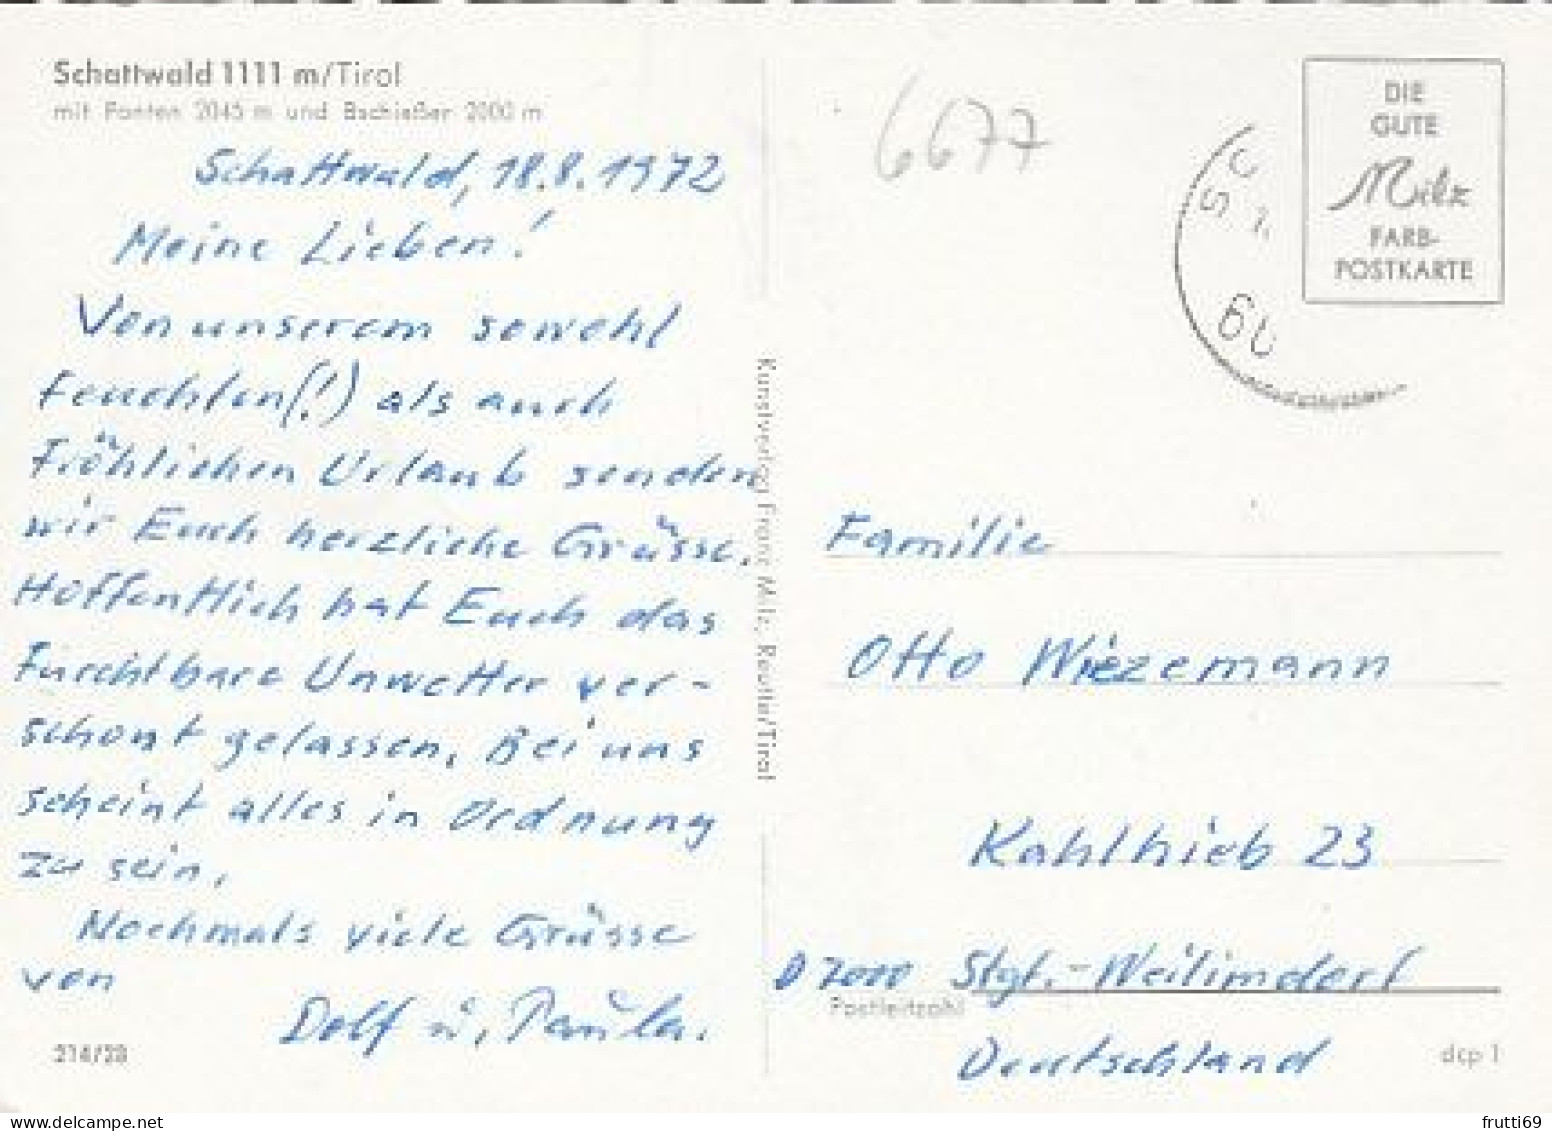 Schattwald 1111 m/Tirol
mit Ponten 2045 m und Bschießer 2000 m
Schattwald, 18.8.1972
Meine Lieben!
Von unserem sowohl
feuchten(!) als auch
fröhlichen Urlaub senden
wir Euch herzliche Grüsse.
Hoffentlich hat Euch das
furchtbare Unwetter ver-
schont gelassen. Bei uns
scheint alles in Ordnung
zu sein.
Nochmals viele Grüsse
von
Dolf u. Paula.
214/23
Kunstverlag Franz Milz, Reutte/Tirol
6677
DIE
GUTE
Milz
FARB-
POSTKARTE
Familie
Otto Wiezemann
Kahlhieb 23
D 7000 Stgt.-Weilimdorf
Postleitzahl
Deutschland
dcp 1
frutti69